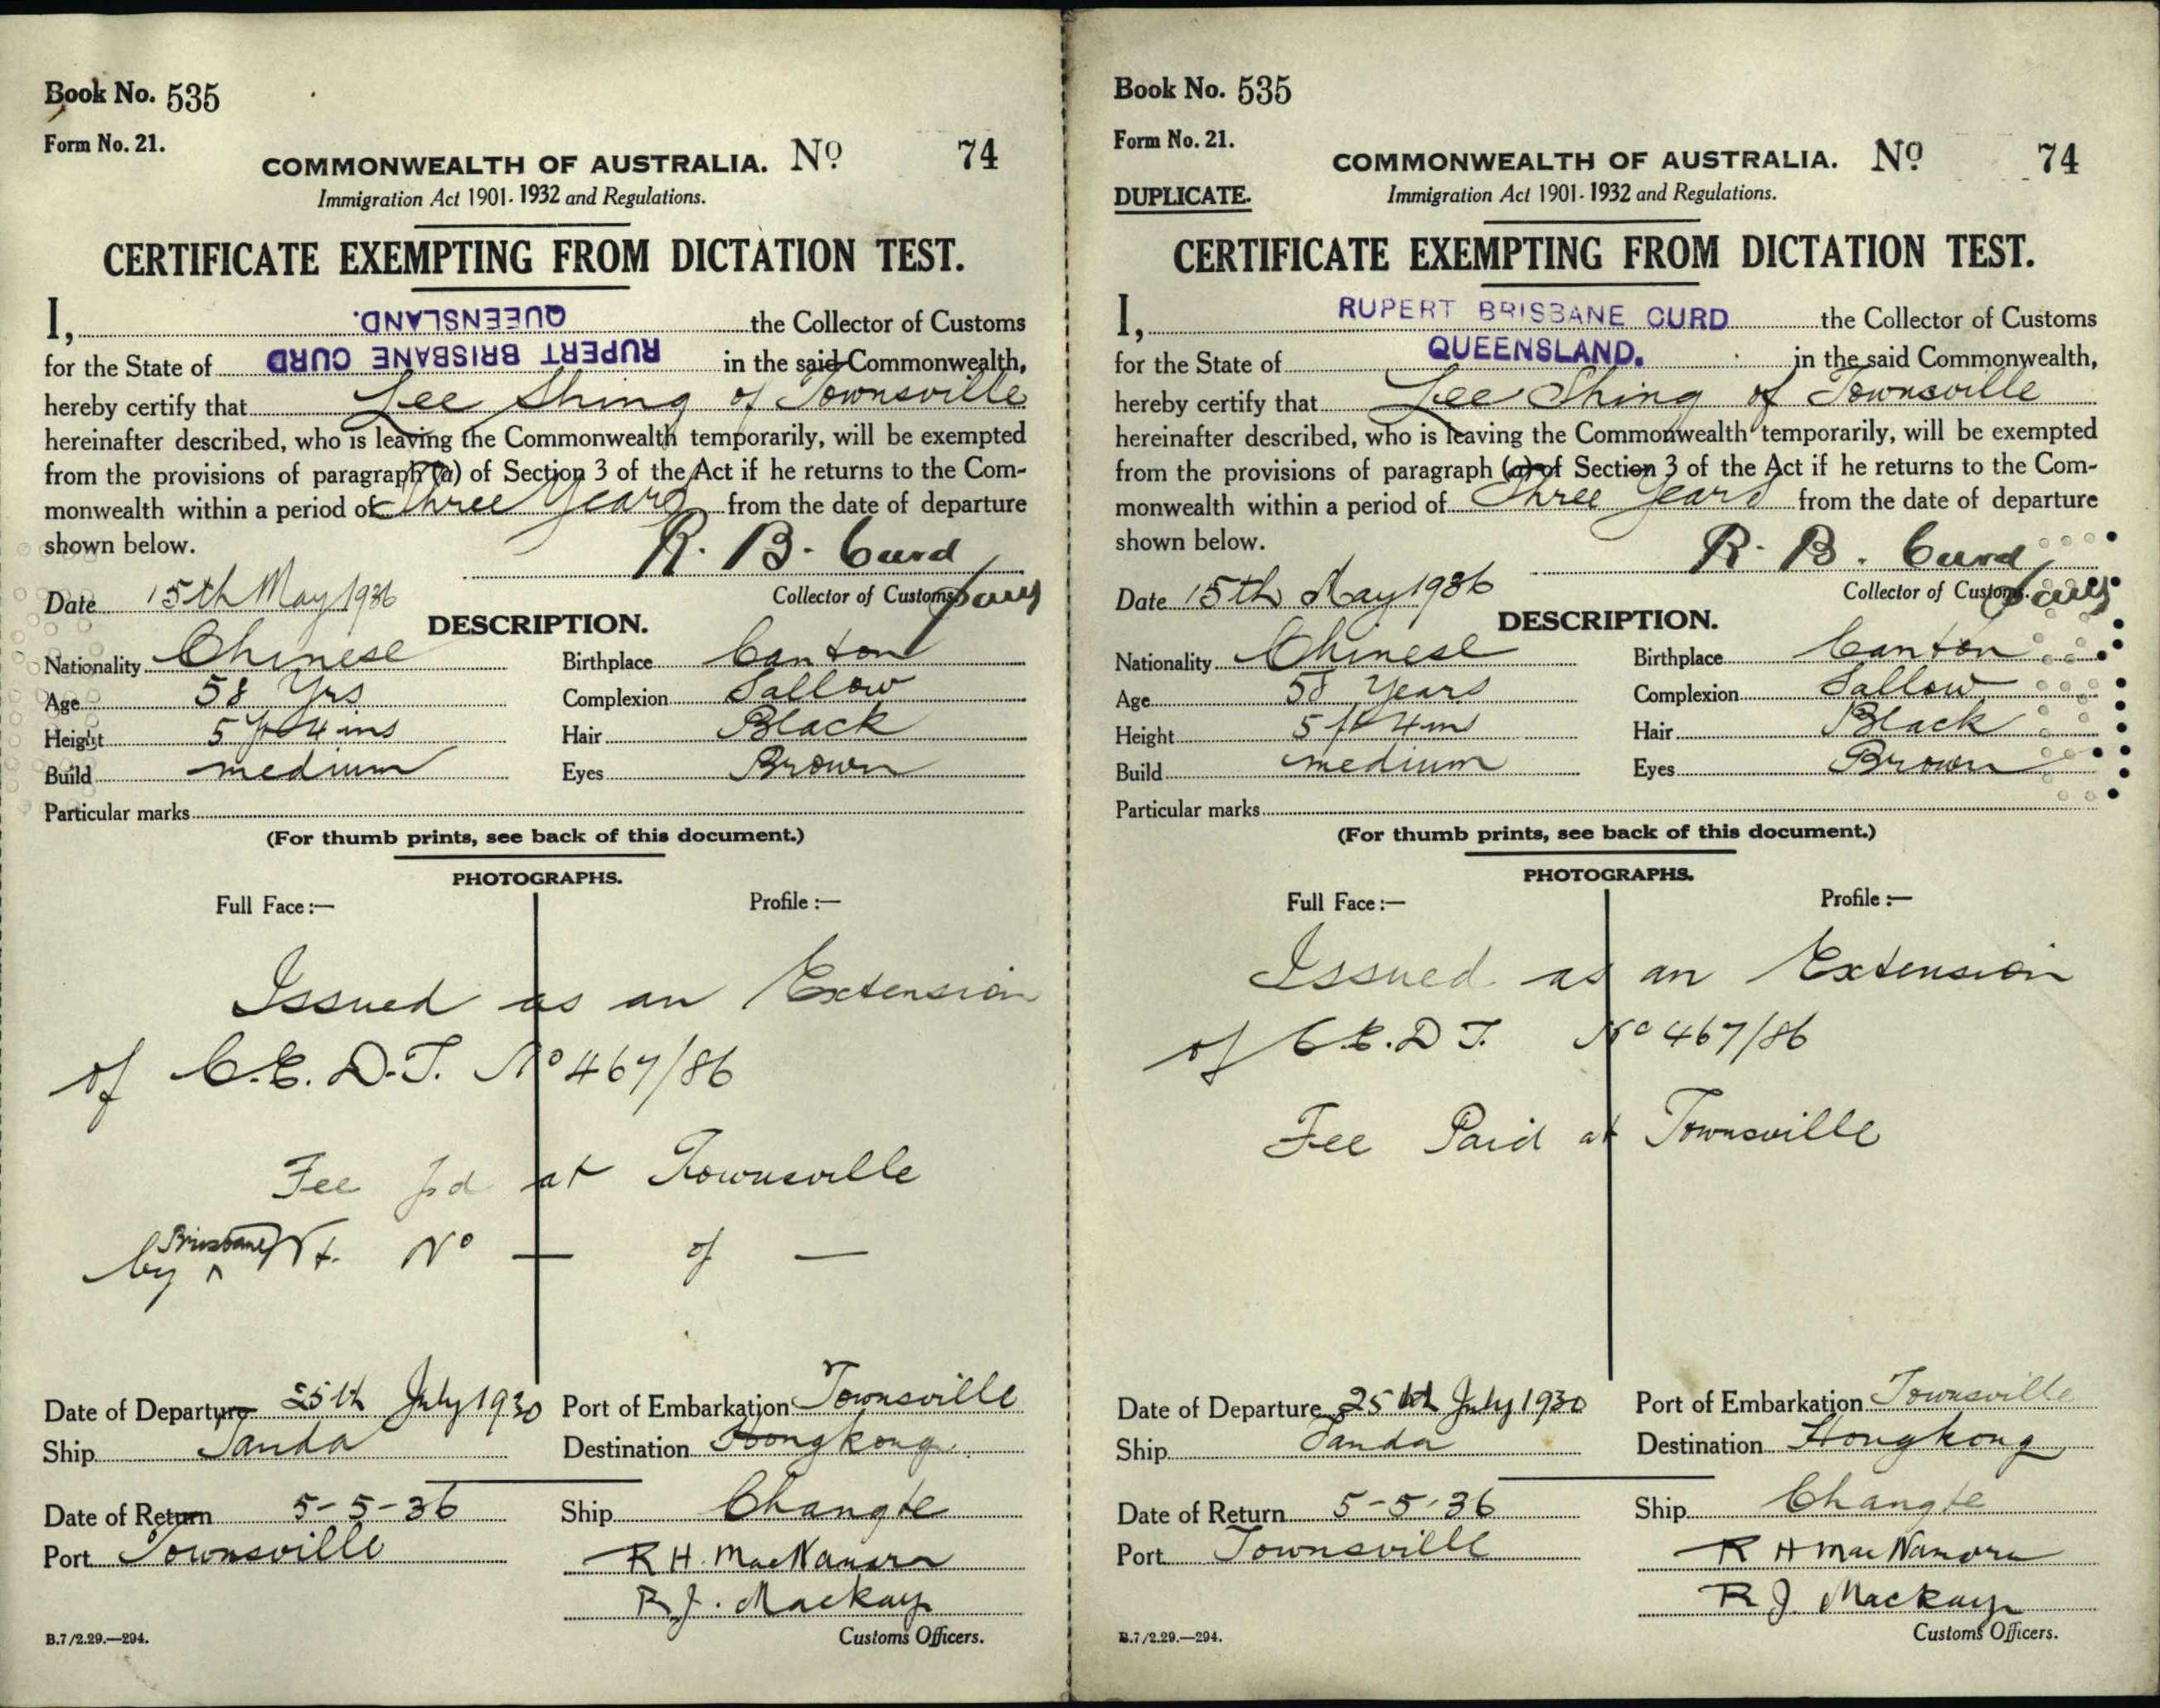 Book No. 535
Form No. 21.
COMMONWEALTH OF AUSTRALIA. No 74
Immigration Act 1901-1932 and Regulations.
CERTIFICATE EXEMPTING FROM DICTATION TEST.
I, QUEENSLAND. the Collector of Customs
for the State of RUPERT BRISBANE CURD in the said Commonwealth,
hereby certify that Lee Shing of Townsville
hereinafter described, who is leaving the Commonwealth temporarily, will be exempted
from the provisions of paragraph (a) of Section 3 of the Act if he returns to the Com-
monwealth within a period of Three Years from the date of departure
shown below.
R. B. Curd
Date 15th May 1936 Collector of Customs
DESCRIPTION.
Nationality Chinese Birthplace Canton
Age 58 Yrs Complexion Sallow
Height 5 ft 4 ins Hair Black
Build medium Eyes Brown
Particular marks
(For thumb prints, see back of this document.)
PHOTOGRAPHS.
Full Face:— Profile:—
Issued as an Extension
of C.E.D.T. No 467/86
Fee pd at Townsville
by Brisbane No — of —
Date of Departure 25th July 1930 Port of Embarkation Townsville
Ship Tanda Destination Hongkong
Date of Return 5-5-36 Ship Changte
Port Townsville R H. MacNamara
R. J. Mackay
B.7/2.29.—294. Customs Officers.
Book No. 535
Form No. 21.
COMMONWEALTH OF AUSTRALIA. No 74
DUPLICATE. Immigration Act 1901-1932 and Regulations.
CERTIFICATE EXEMPTING FROM DICTATION TEST.
I, RUPERT BRISBANE CURD the Collector of Customs
for the State of QUEENSLAND. in the said Commonwealth,
hereby certify that Lee Shing of Townsville
hereinafter described, who is leaving the Commonwealth temporarily, will be exempted
from the provisions of paragraph (a) of Section 3 of the Act if he returns to the Com-
monwealth within a period of Three Years from the date of departure
shown below.
R. B. Curd
Date 15th May 1936 Collector of Customs.
DESCRIPTION.
Nationality Chinese Birthplace Canton
Age 58 Years Complexion Sallow
Height 5 ft 4 in Hair Black
Build medium Eyes Brown
Particular marks
(For thumb prints, see back of this document.)
PHOTOGRAPHS.
Full Face:— Profile:—
Issued as an Extension
of C.E.D.T. No 467/86
Fee Paid at Townsville
Date of Departure 25th July 1930 Port of Embarkation Townsville
Ship Tanda Destination Hongkong
Date of Return 5-5-36 Ship Changte
Port Townsville R H MacNamara
R J. Mackay
B.7/2.29.—294. Customs Officers.